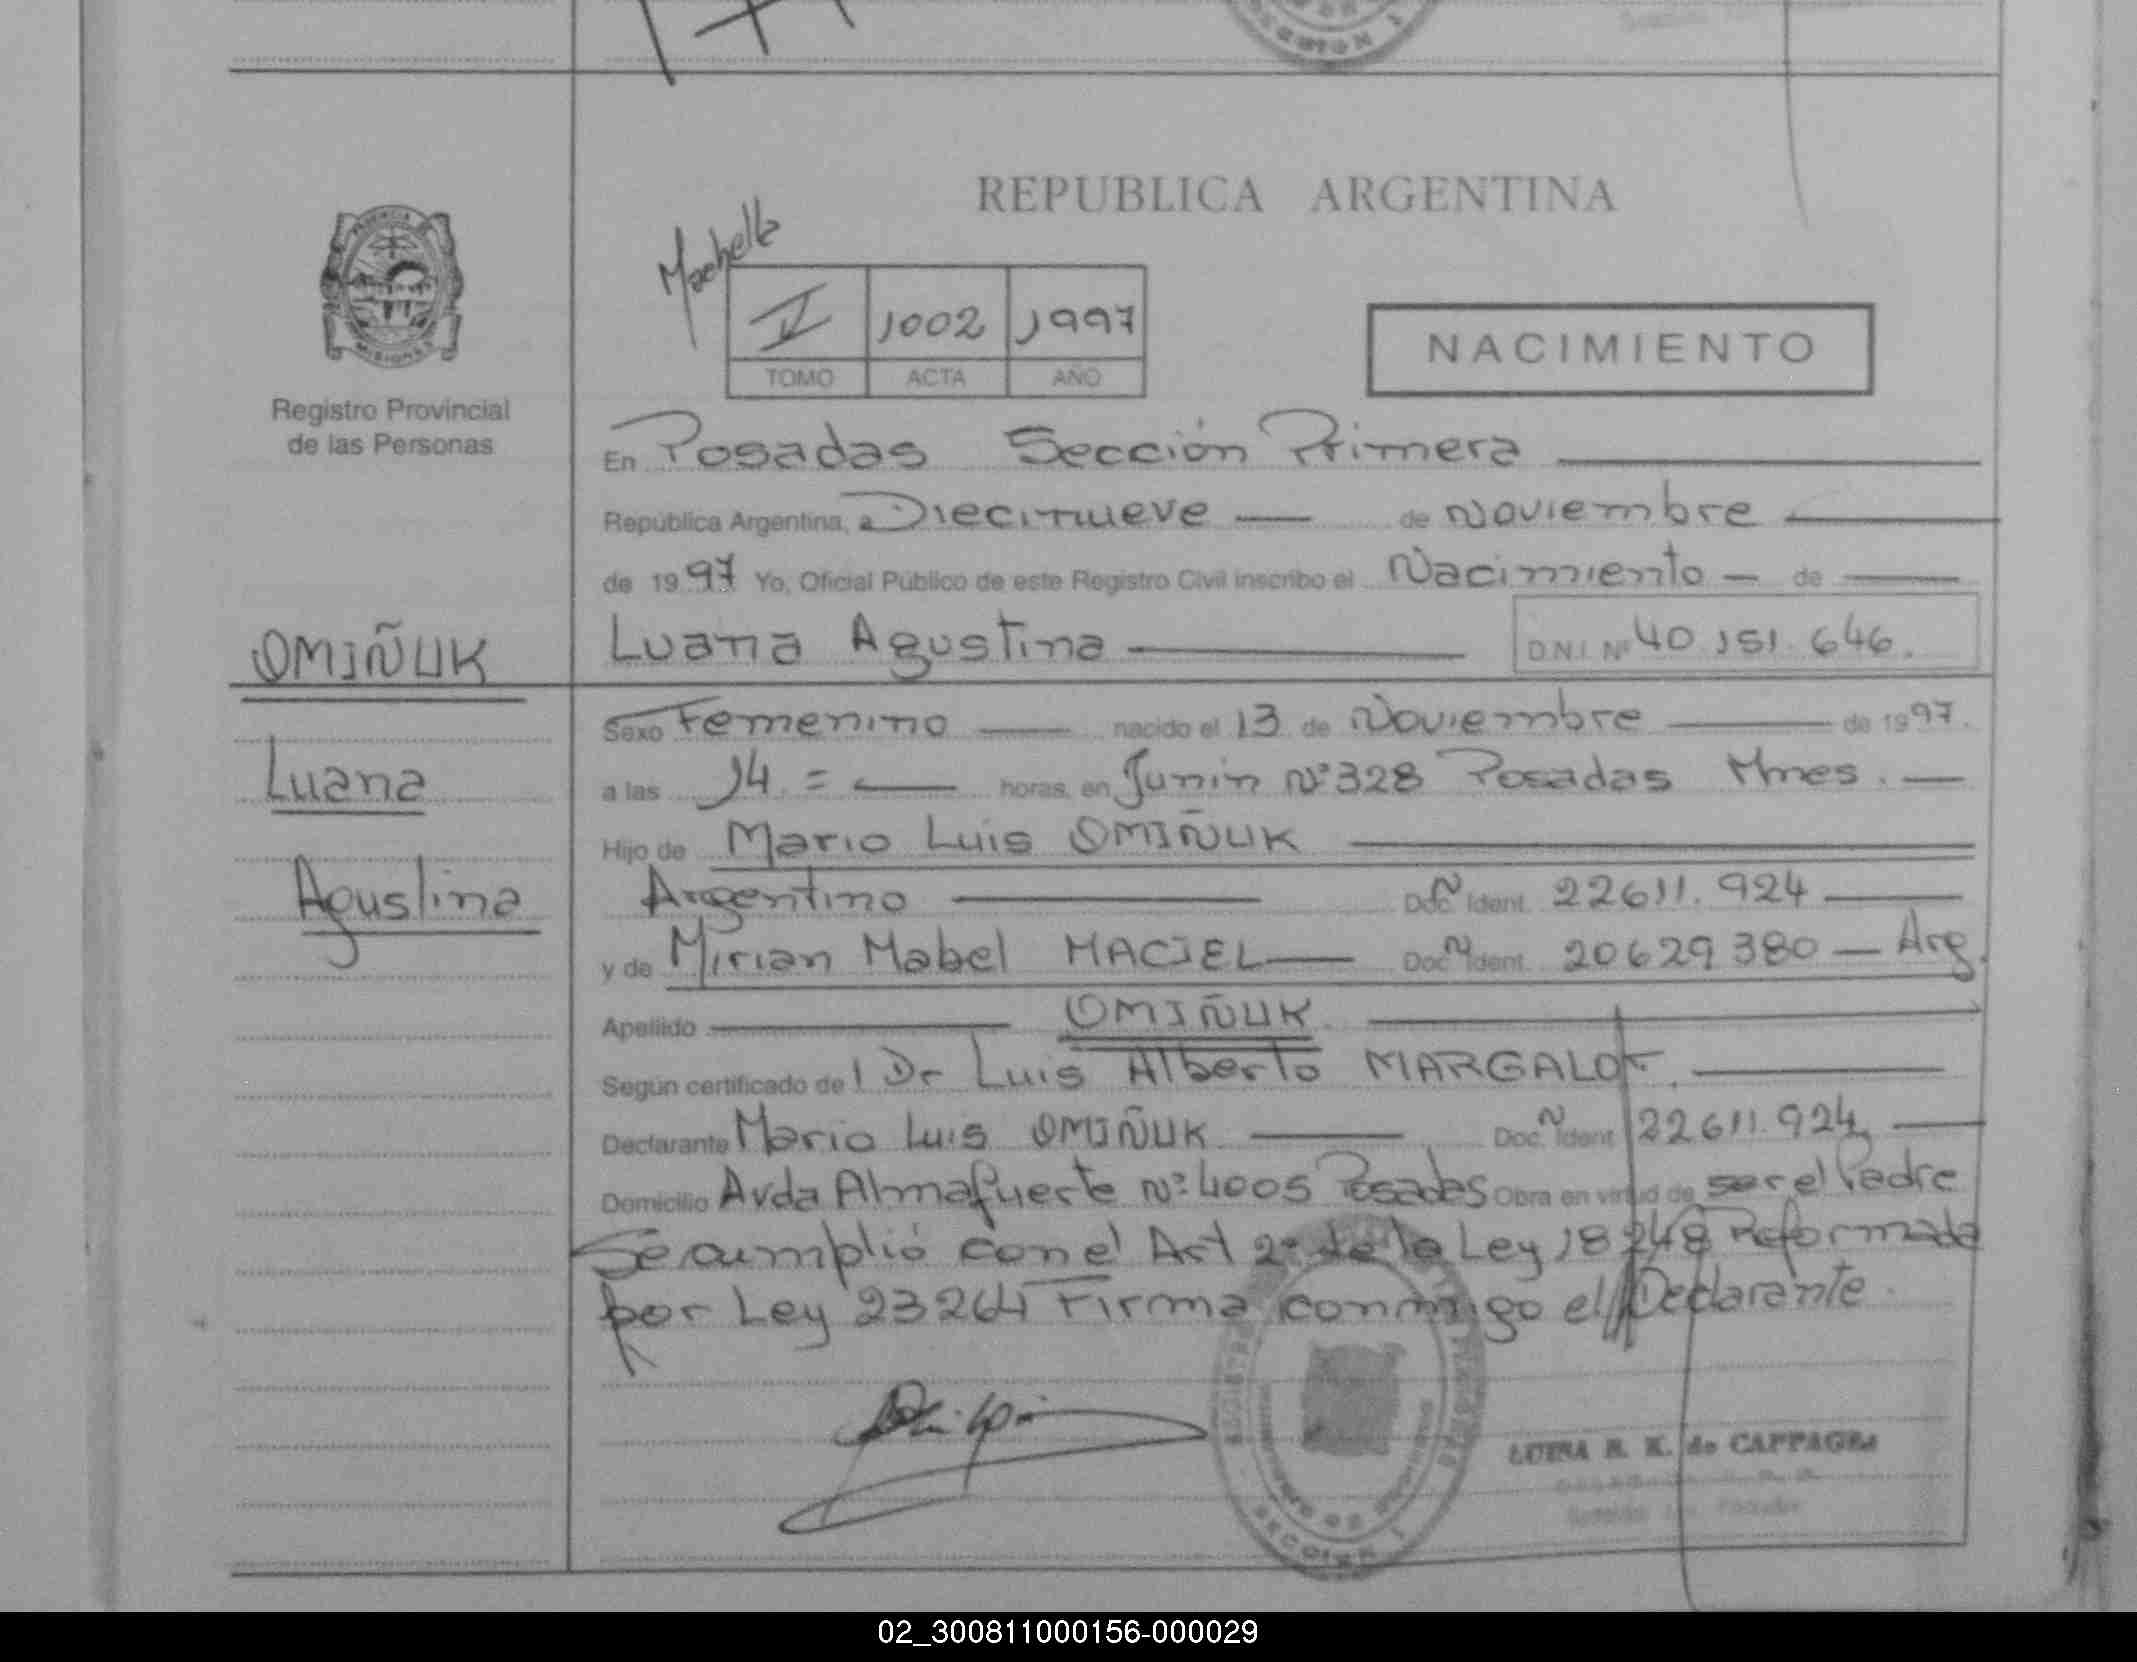 REPUBLICA ARGENTINA
PROVINCIA
MISIONES
Registro Provincial
de las Personas
V 1002 1997
TOMO ACTA AÑO
NACIMIENTO
En Posadas Sección Primera
República Argentina, a Diecinueve — de Noviembre
de 1997 Yo, Oficial Público de este Registro Civil inscribo el Nacimiento — de
OMIÑUK
Luana
Agustina
Luana Agustina D.N.I. Nº 40.151.646.
Sexo Femenino nacido el 13 de Noviembre de 1997.
a las 14.= horas, en Junin Nº 328 Posadas Mnes.
Hijo de Mario Luis OMIÑUK
Argentino Doc. Ident. 22611.924
y de Mirian Mabel MACIEL Doc. Ident. 20629380 — Arg.
Apellido OMIÑUK
Según certificado del Dr Luis Alberto
Declarante Mario Luis OMIÑUK Doc. Ident. 22611.924
Domicilio Avda Almafuerte Nº 4005 Posadas Obra en virtud de ser el Padre
Se cumplió con el Art 2º de la Ley 18248 Reformada
por Ley 23264 Firma conmigo el Declarante.
SECCION 1
02_300811000156-000029